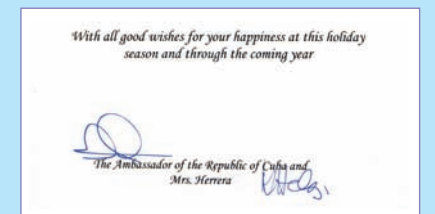 With all good wishes for your happiness at this holiday
season and through the coming year
The Ambassador of the Republic of Cuba and
Mrs. Herrera